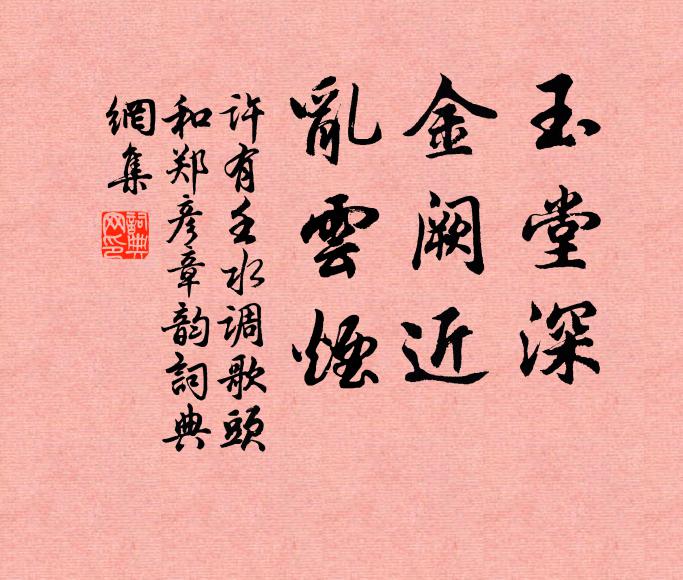 玉堂深
金阙近
亂雲煙
许有壬水调歌頭
和郑彦章韵詞典
網集
詞典网印